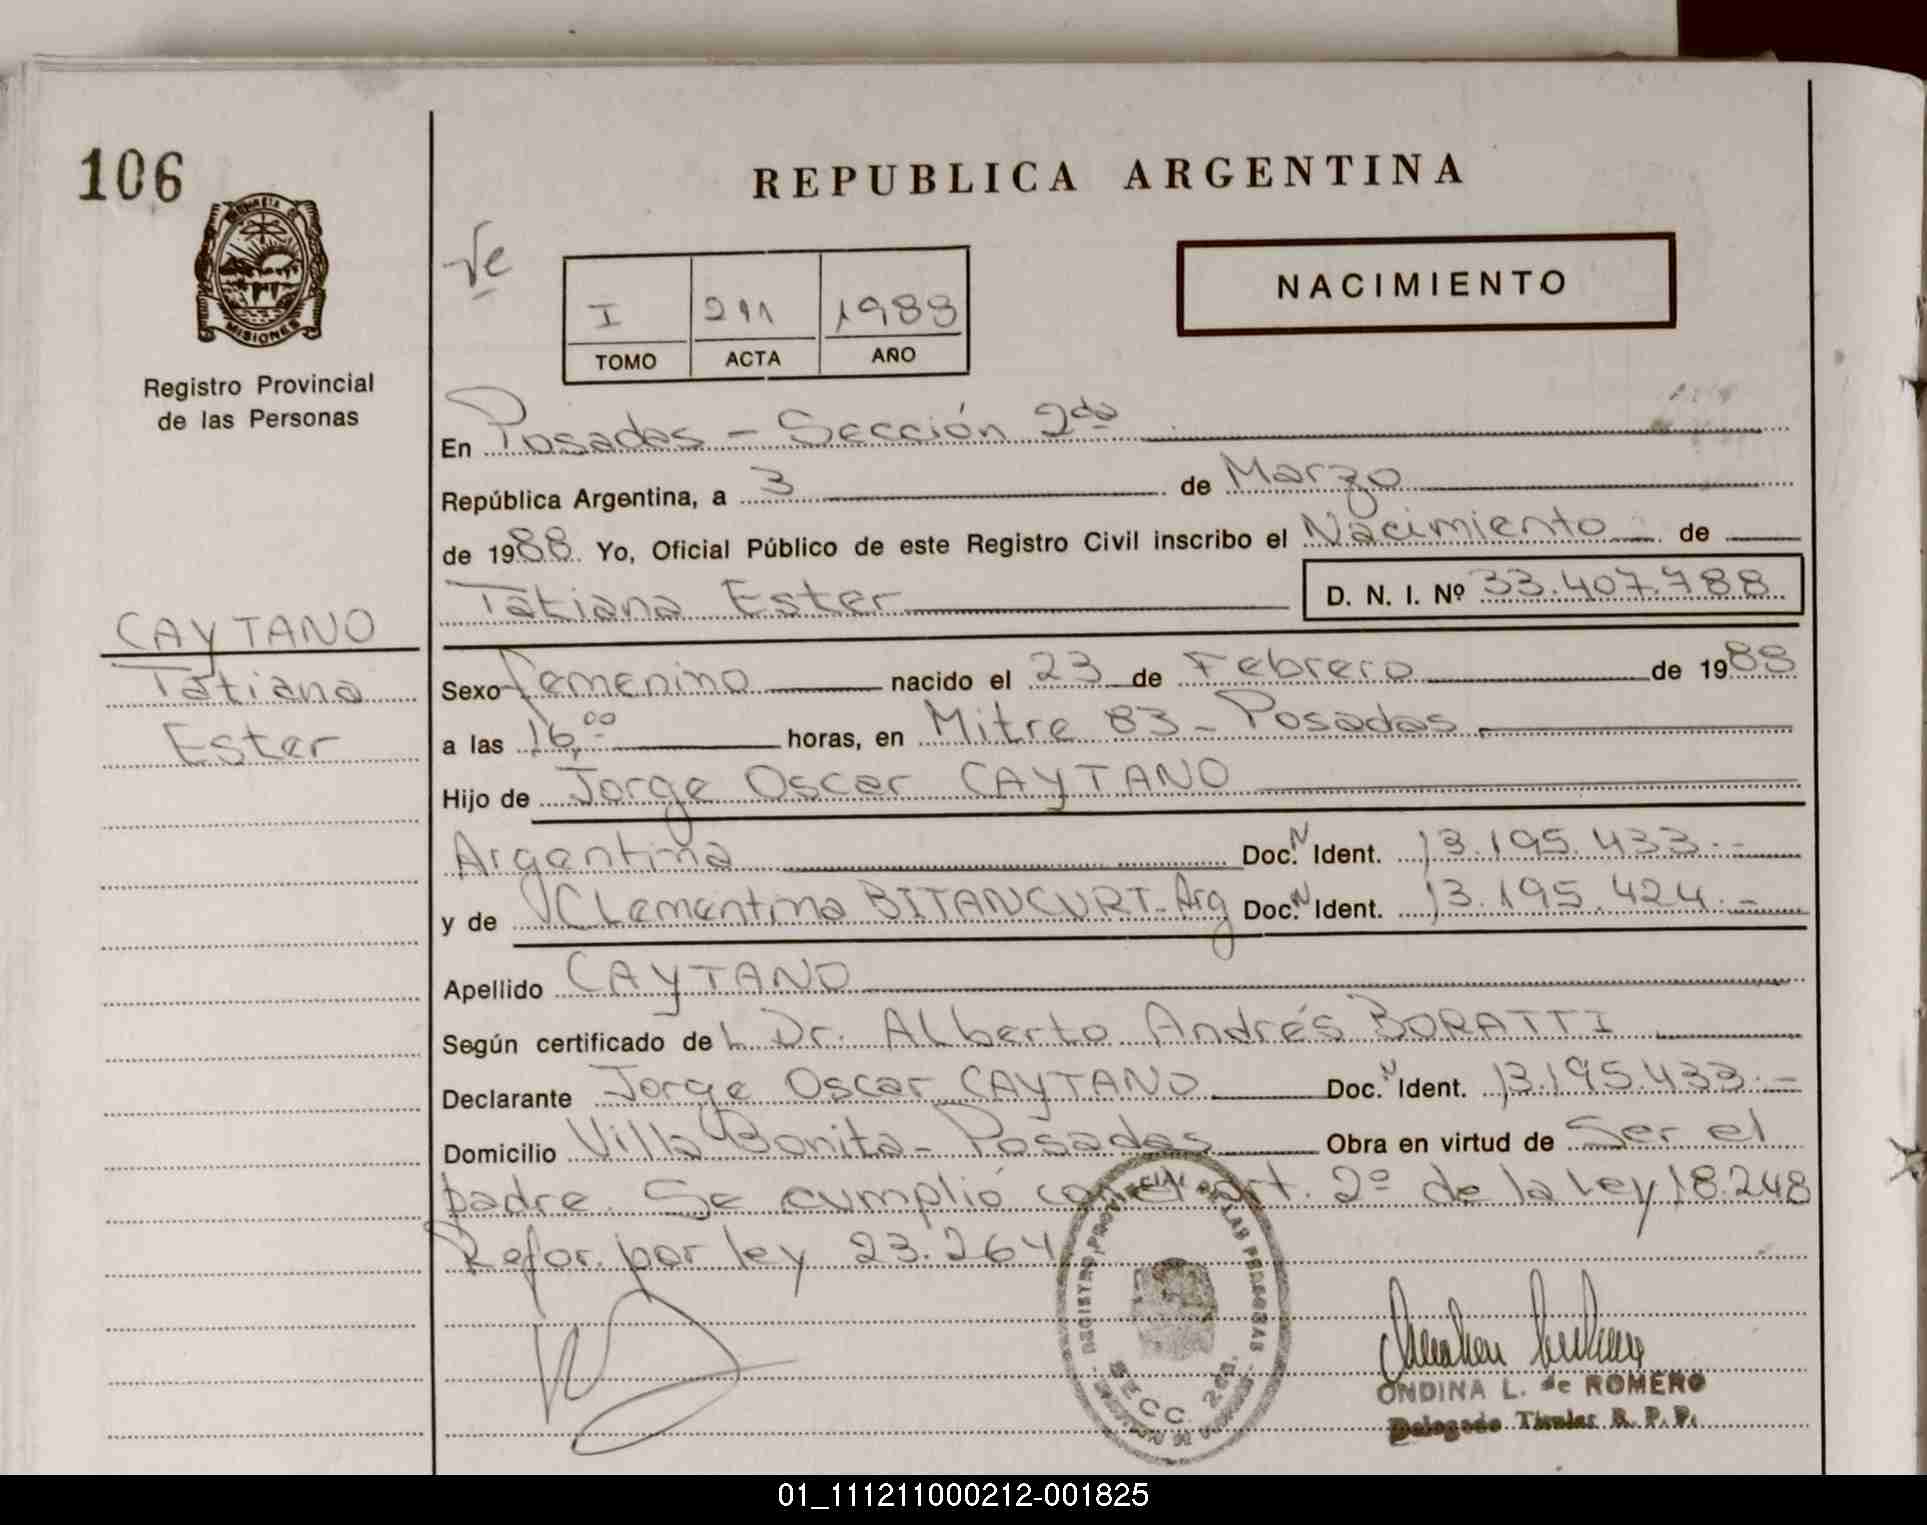 106
REPUBLICA ARGENTINA
MISIONES
Registro Provincial
de las Personas
I 211 1988
TOMO ACTA AÑO
NACIMIENTO
En Posadas - Sección 2da
República Argentina, a 3 de Marzo
de 1988. Yo, Oficial Público de este Registro Civil inscribo el Nacimiento de
Tatiana Ester D. N. I. Nº 33.407.788
CAYTANO
Tatiana
Ester
Sexo femenino nacido el 23 de Febrero de 1988
a las 16,00 horas, en Mitre 83 - Posadas
Hijo de Jorge Oscar CAYTANO
Argentina Doc. N Ident. 13.195.433.-
y de Clementina BITANCURT - Arg Doc. N Ident. 13.195.424.-
Apellido CAYTANO
Según certificado de L Dr. Alberto Andrés BORATTI
Declarante Jorge Oscar CAYTANO Doc. N Ident. 13.195.433.-
Domicilio Villa Bonita - Posadas Obra en virtud de Ser el
padre. Se cumplió con el art. 2º de la ley 18.248
Refor. por ley 23.264
REGISTRO PROVINCIAL DE LAS PERSONAS
SECC. 2da.
ONDINA L. de ROMERO
Delegado Titular R. P. P.
01_111211000212-001825